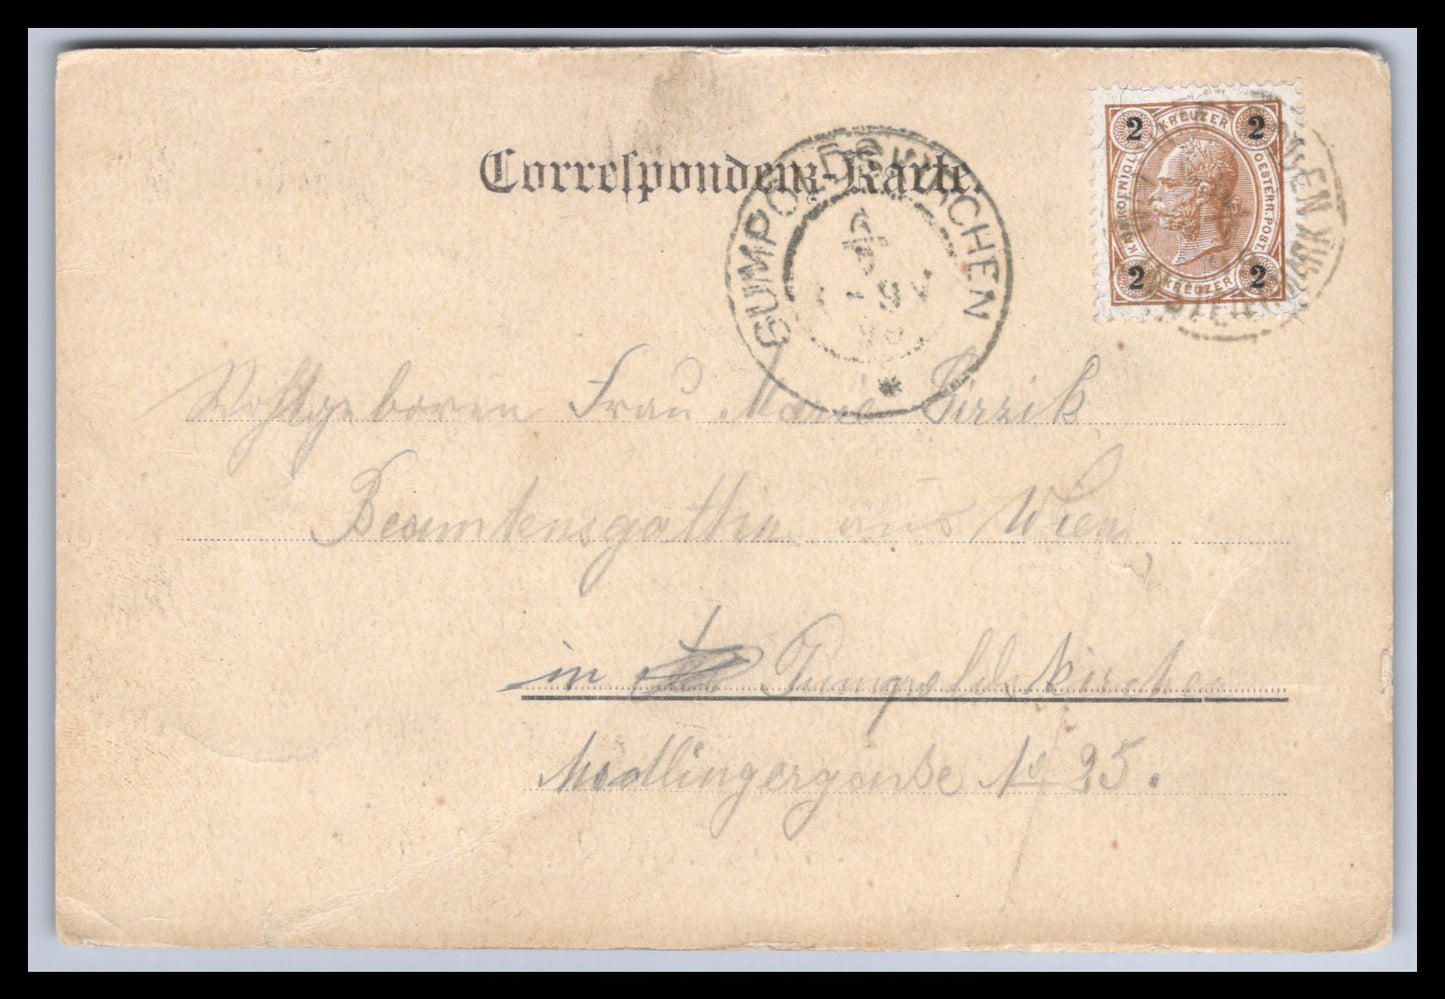 Correspondenz-Karte.
GUMPOLDSKIRCHEN
2 KREUZER 2
K.K. KOENIGL. OESTERR. POST.
2 KREUZER 2
Wohlgeboren Frau Marie
Beamtensgattin aus Wien
in Gumpoldskirchen
Mödlingergasse No 25.